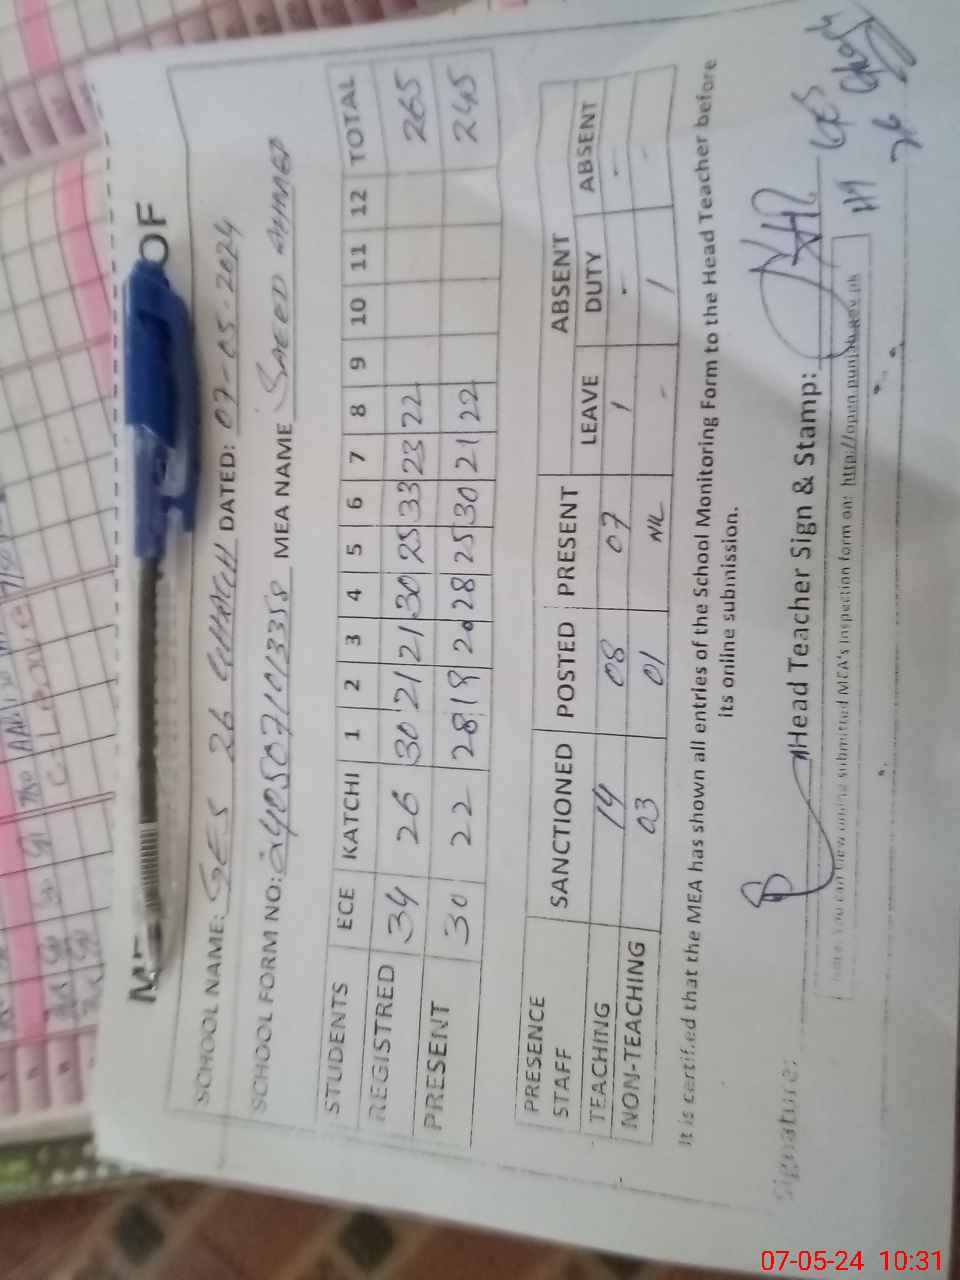 OF
SCHOOL NAME: GES 26 CHHACH DATED: 07-05-2024
SCHOOL FORM NO: MEA NAME SAEED AHMED
STUDENTS ECE KATCHI 1 2 3 4 5 6 7 8 9 10 11 12 TOTAL
REGISTRED 34 26 30 21 21 30 25 33 23 22 265
PRESENT 30 22 28 19 20 28 25 30 21 22 245
PRESENCE SANCTIONED POSTED PRESENT ABSENT
STAFF LEAVE DUTY ABSENT
TEACHING 14 08 07 1 - -
NON-TEACHING 03 01 NIL - 1 -
It is certified that the MEA has shown all entries of the School Monitoring Form to the Head Teacher before
its online submission.
Signature: Head Teacher Sign & Stamp:
You can view online submitted MEA's Inspection form on: http://open.punjab.gov.pk
07-05-24 10:31